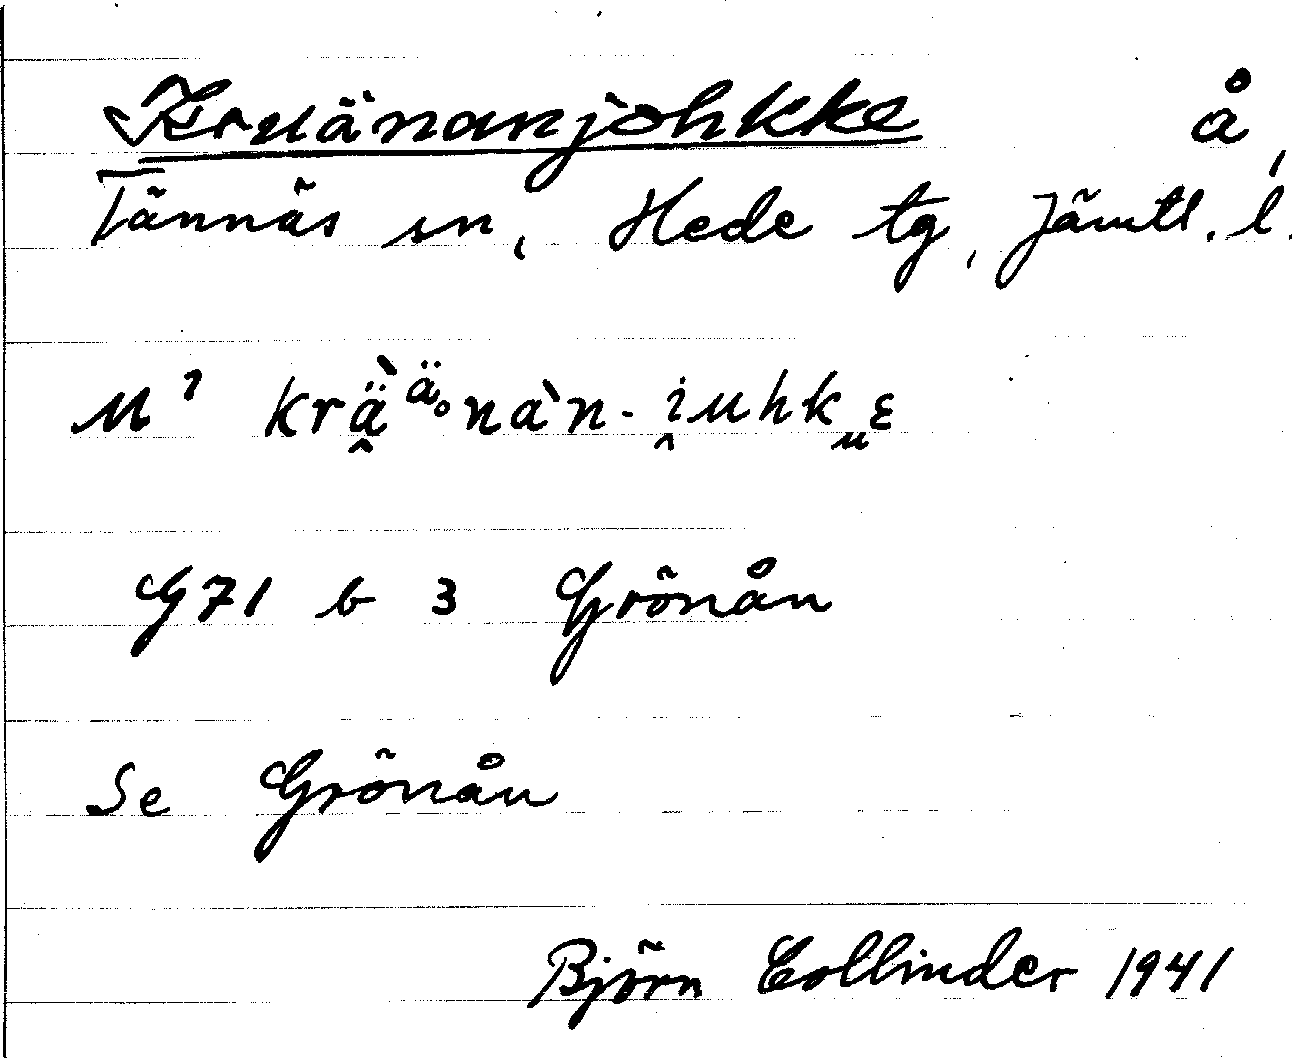 Kruänanjohkke å,
Tännäs sn, Hede tg, Jämtl. l.
M? krä̭̀ ḁ̈nàn-i̭uhkᵤɛ
G71 b 3 Grönån
Se Grönån
Björn Collinder 1941